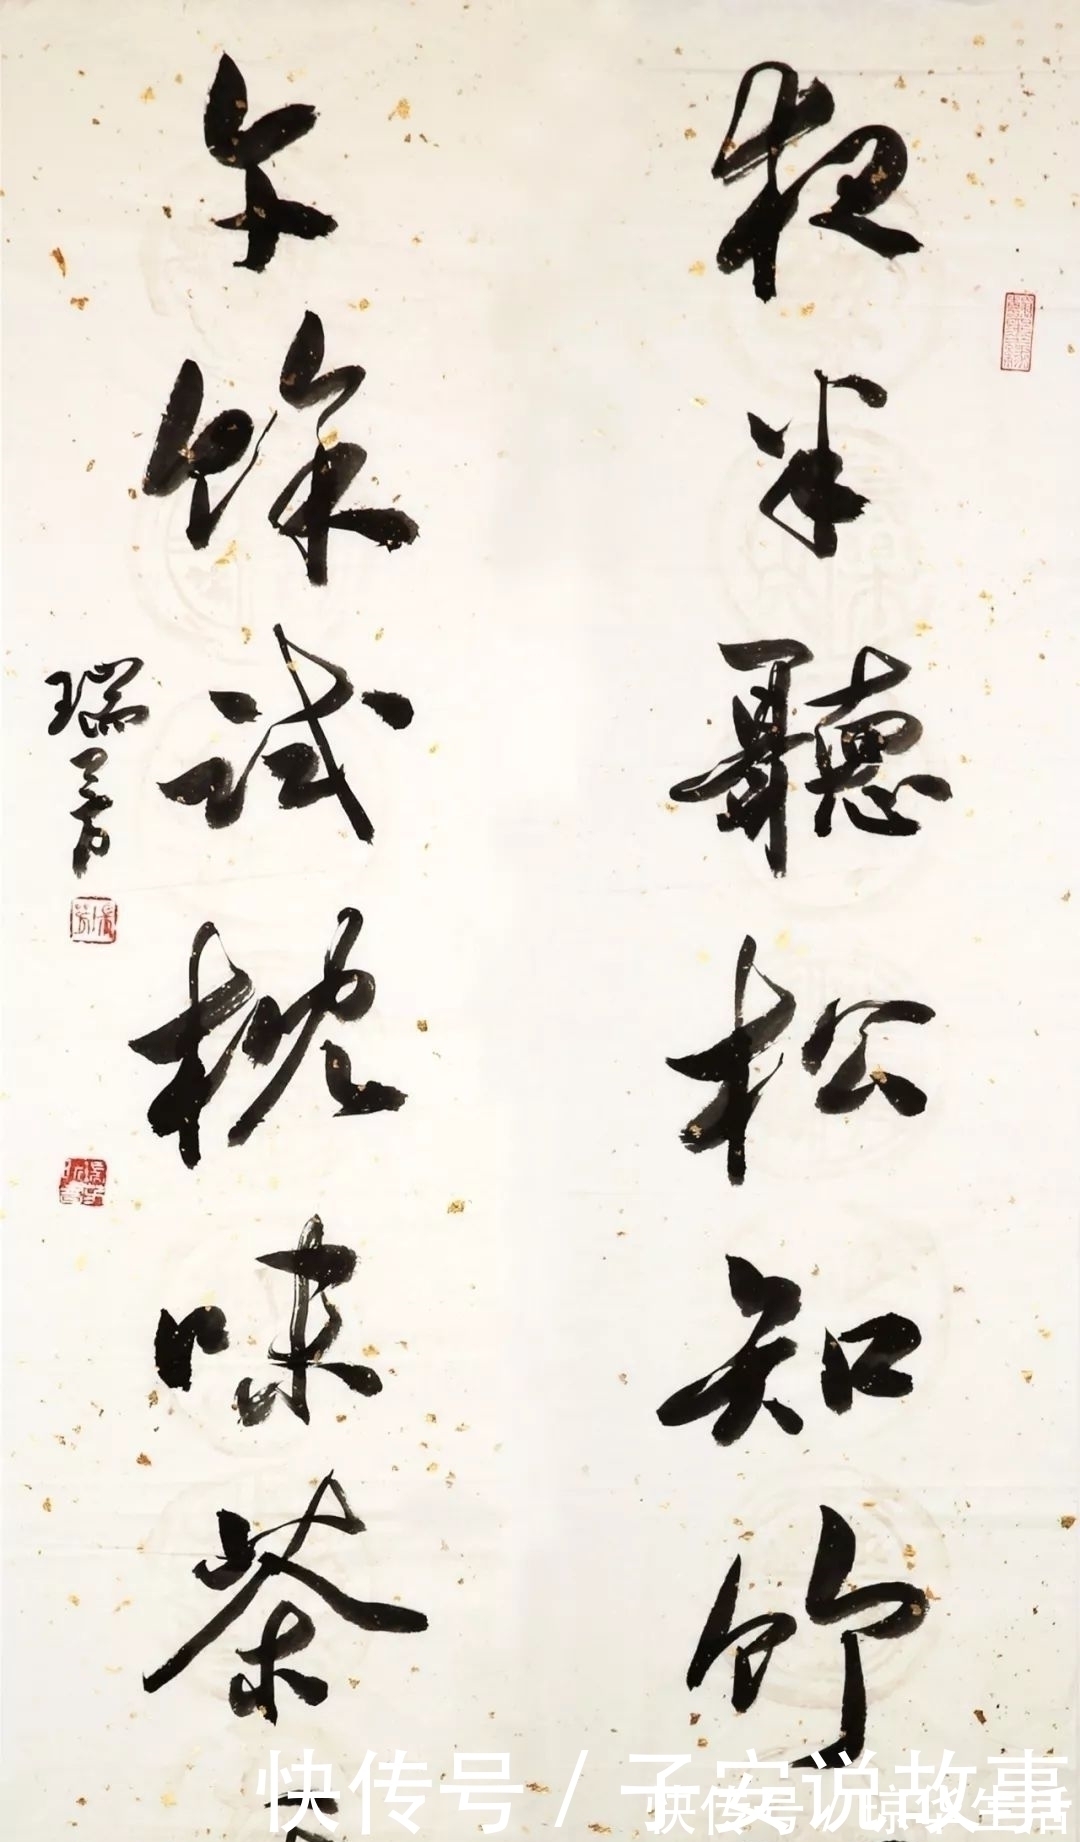 夜半聽松知竹
午餘試枕味茶
瑞芳
快传号 / 子安说故事